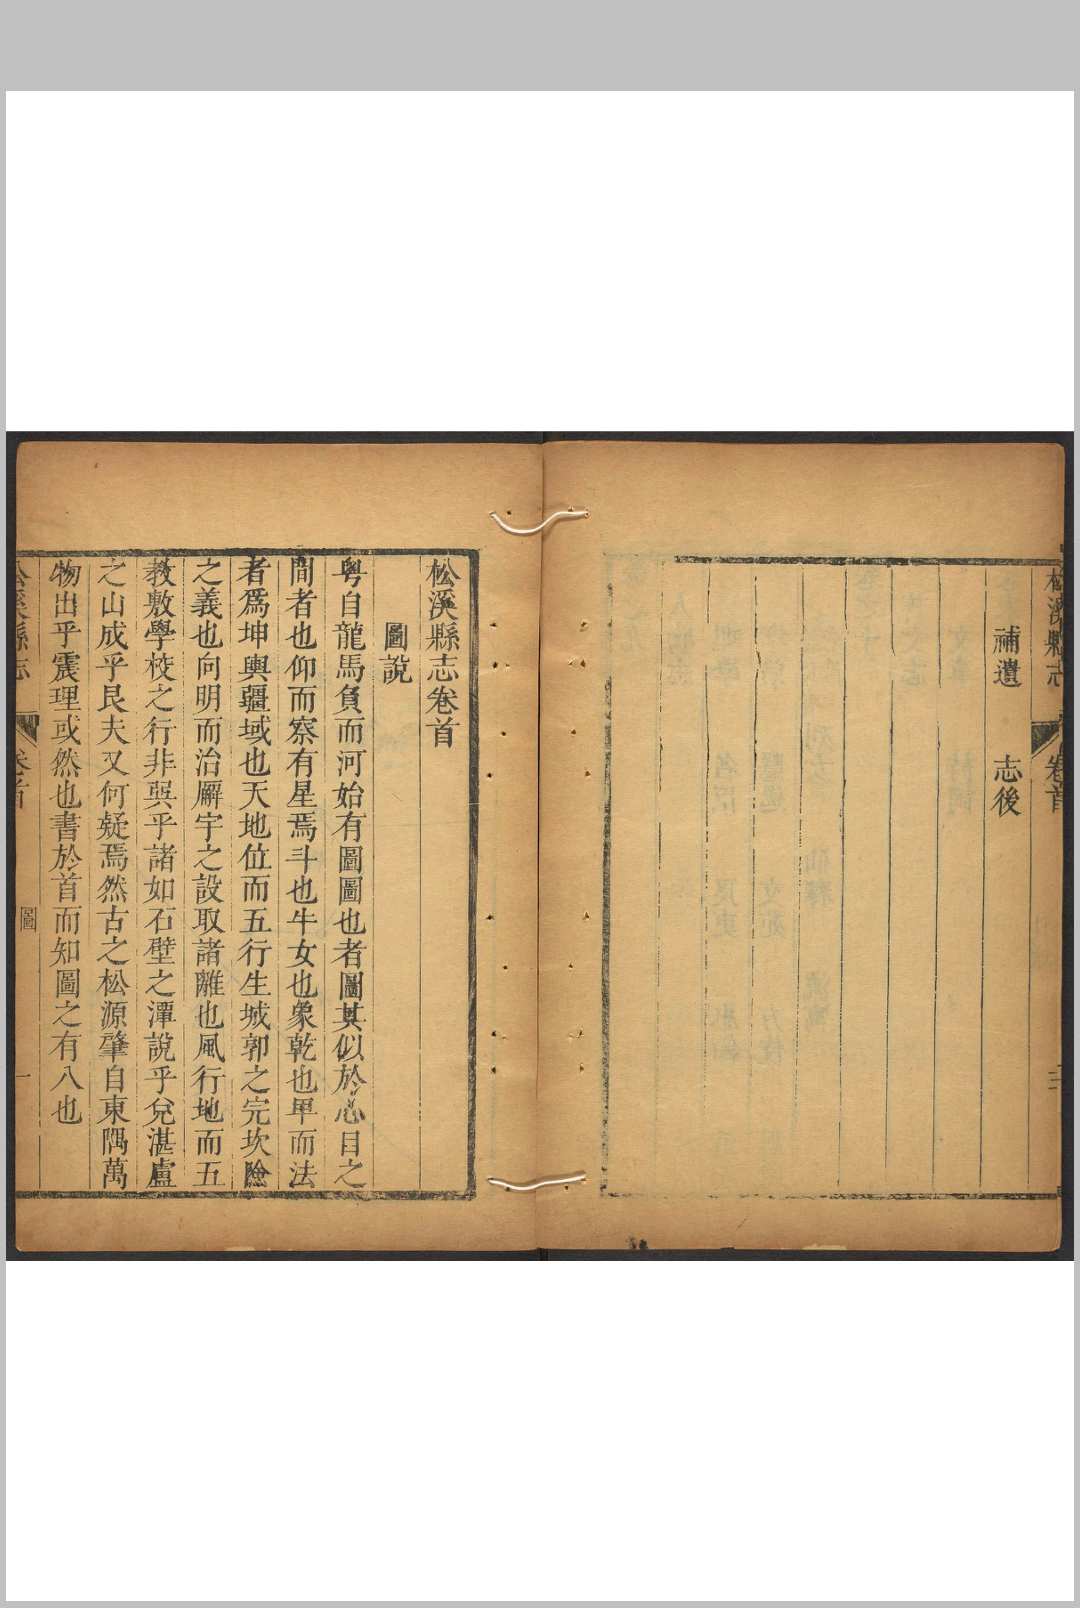 松溪縣志
卷首
補遺　志後
松溪縣志卷首
圖說
粤自龍馬負而河始有圖圖也者圖其似於心目之
間者也仰而察有星焉斗也牛女也象乾也畢而法
者爲坤輿疆域也天地位而五行生城郭之完坎險
之義也向明而治廨宇之設取諸離也風行地而五
教敷學校之行非巽乎諸如石壁之潭說乎兌湛盧
之山成乎艮夫又何疑焉然古之松源肇自東隅萬
物出乎震理或然也書於首而知圖之有八也
松溪縣志
卷首
圖
一